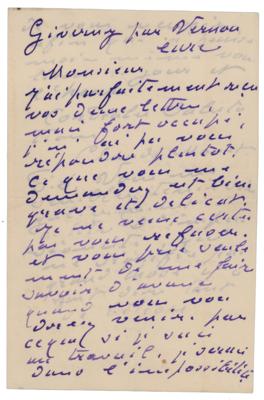 Giverny par Vernon
Eure
Monsieur
j'ai parfaitement reçu
vos deux lettres
mais fort occupé,
je n'ai pu vous
répondre plutot.
Ce que vous me
demandez est bien
grave et délicat
je ne veux
pas vous refuser.
et vous prie seule
ment de me faire
savoir d'avance
quand vous vou
drez venir. par
ceque si je suis
au travail, je serai
dans l'impossibilité